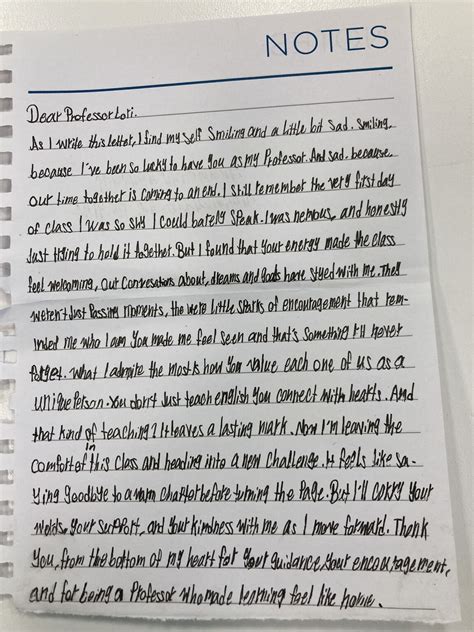 NOTES
Dear Professor Lori.
As I write this letter, I find my self smiling and a little bit sad. smiling,
because I've been so lucky to have you as my Professor. And sad. because
our time together is coming to an end. I still remember the very first day
of class I was so shy I could barely speak. I was nervous, and honestly
Just trying to hold it together. But I found that your energy made the class
feel welcoming, our Conversations about, dreams and goals have styed with me. They
weren't Just Passing moments, the were little sparks of encouragement that rem-
inded me who I am you made me feel seen and that's something I'll never
forget. What I admire the most is how you value each one of us as a
unique Person. You don't Just teach english you connect with hearts. And
that kind of teaching? It leaves a lasting mark. Now I'm leaving the
comfort of in this class and heading into a new challenge. It feels like sa-
ying goodbye to a warm chapter before turning the Page. But I'll carry your
words, your support, and your kindness with me as I move forward. Thank
you, from the bottom of my heart for your guidance, your encouragement,
and for being a Professor who made learning feel like home.